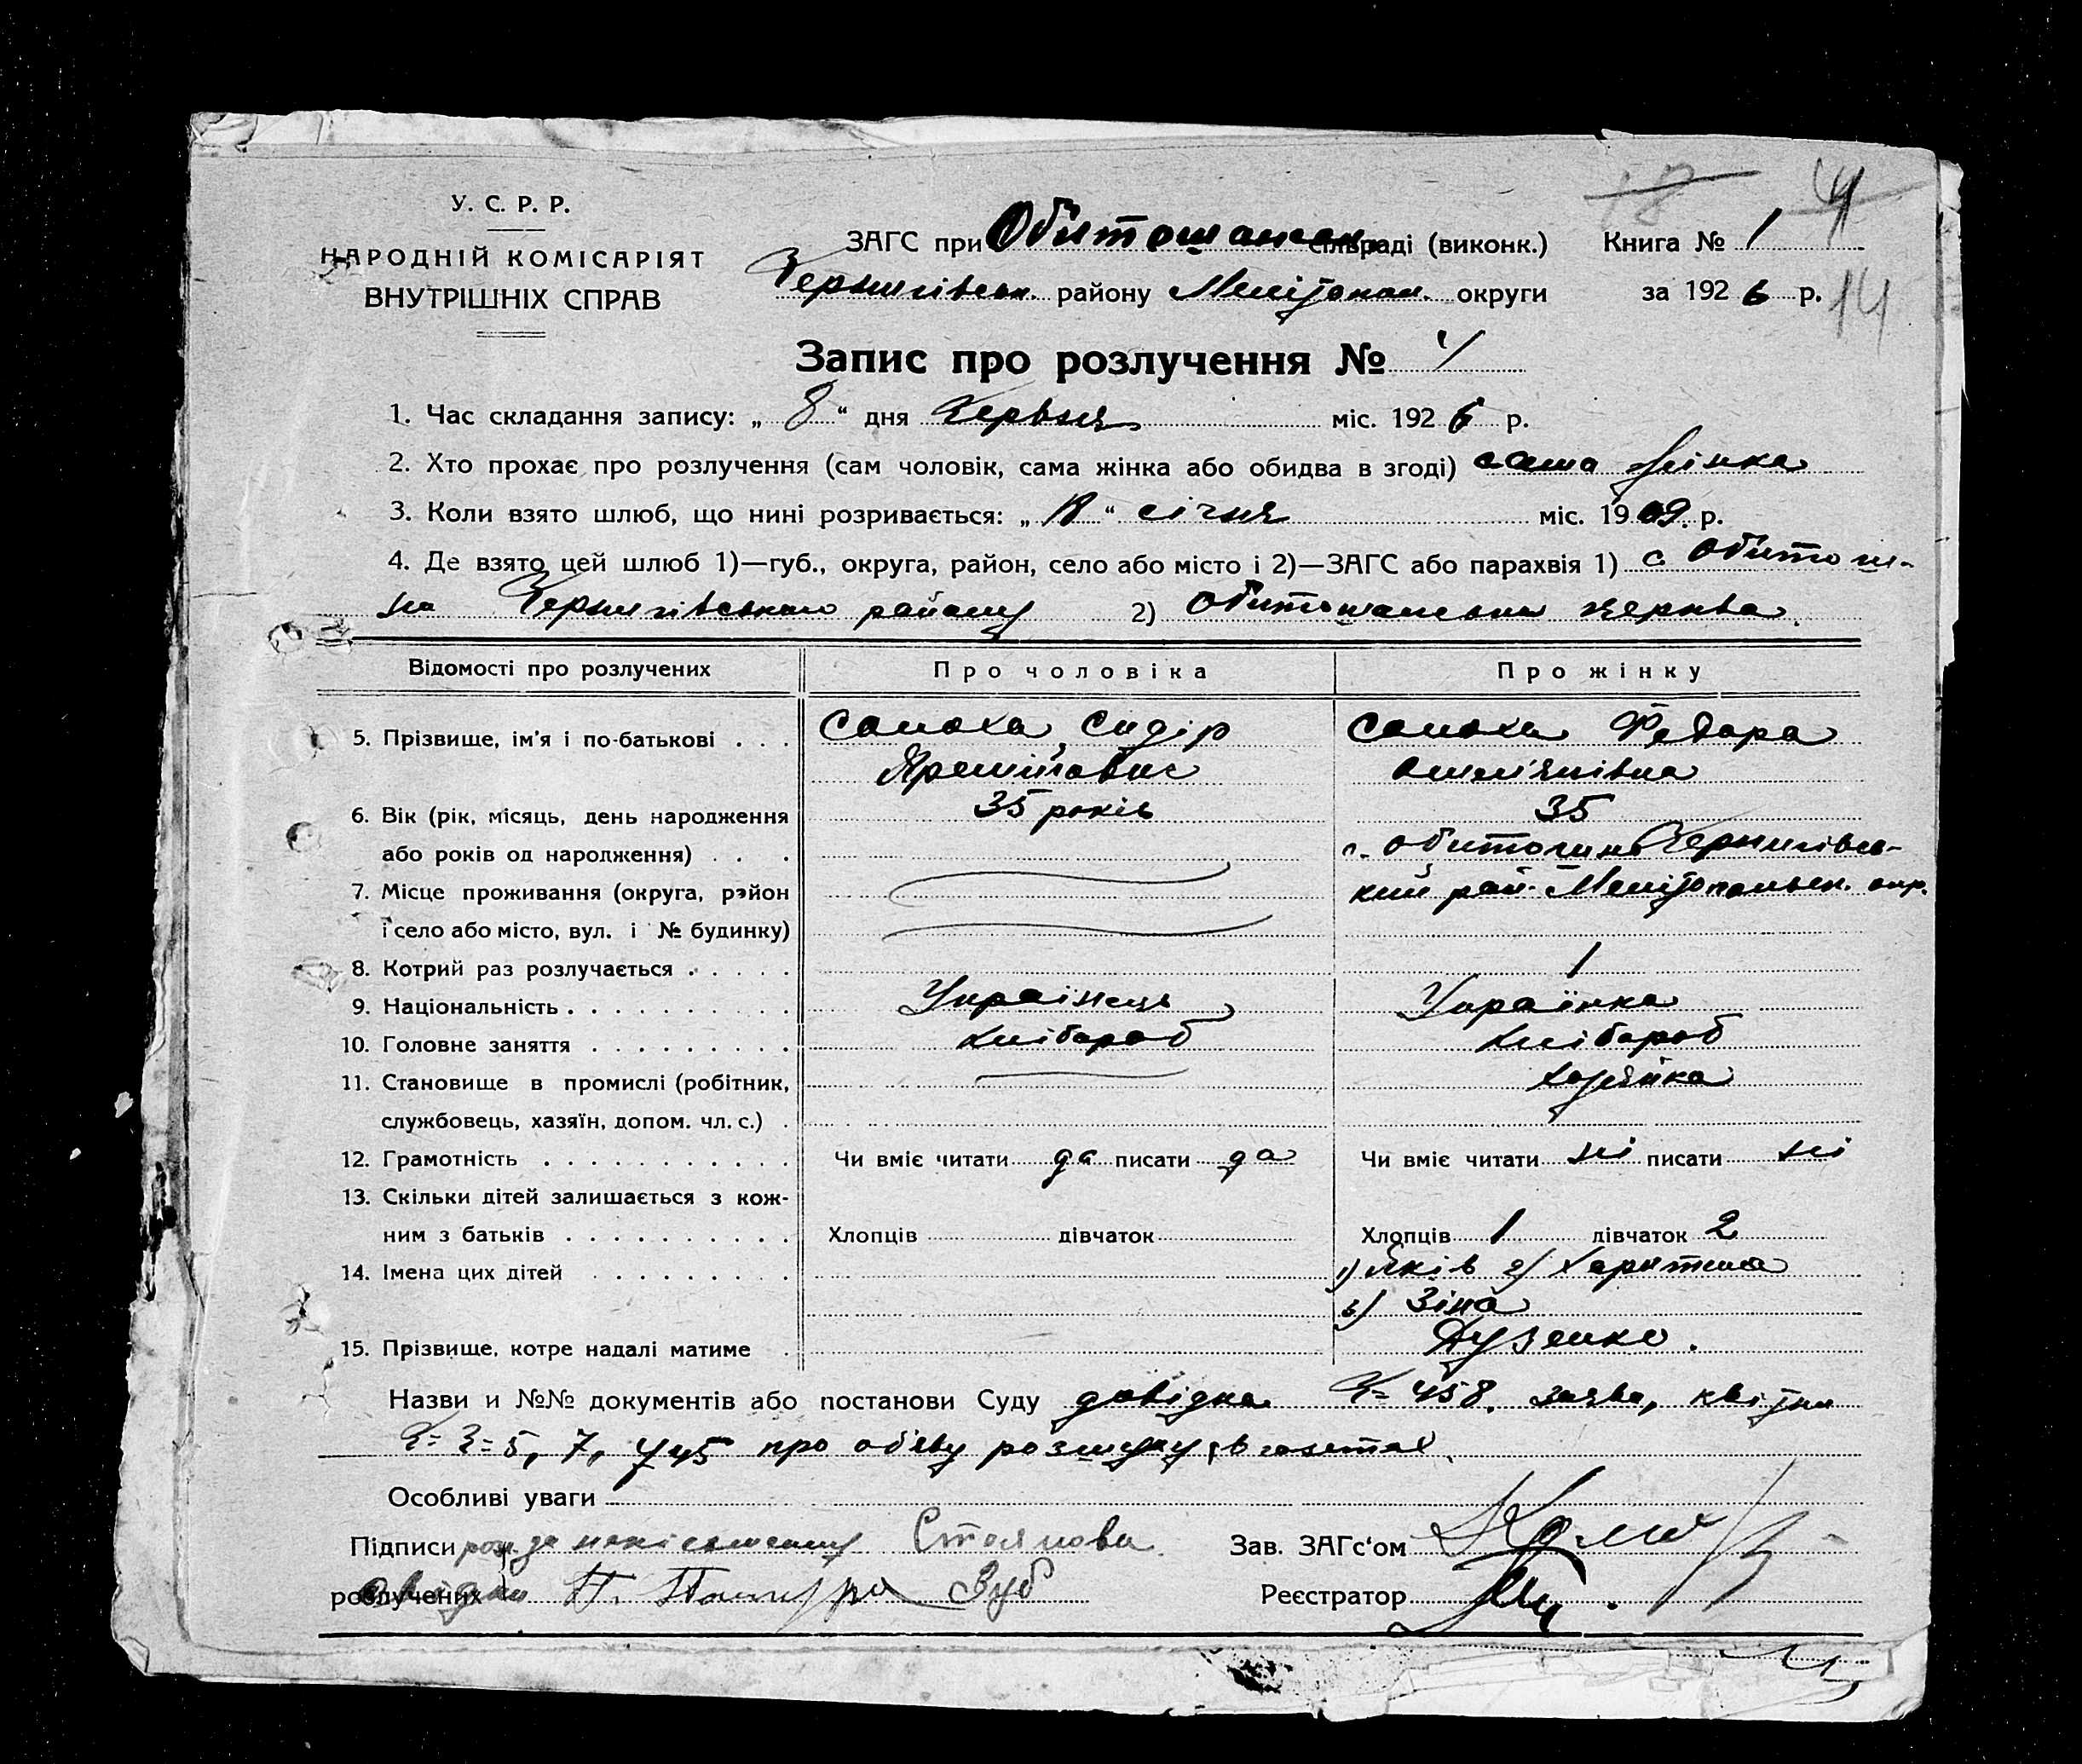 У. С. Р. Р.
НАРОДНІЙ КОМІСАРІЯТ
ВНУТРІШНІХ СПРАВ
18 4
ЗАГС при Обитошанськ. сільраді (виконк.) Книга № 1
Чернигівськ. району Мелітопол. округи за 1926 р. 14
Запис про розлучення № 4
1. Час складання запису: „ 8 “ дня Червня міс. 1926 р.
2. Хто прохає про розлучення (сам чоловік, сама жінка або обидва в згоді) сама жінка
3. Коли взято шлюб, що нині розривається: „ “ січня міс. 1909 р.
4. Де взято цей шлюб 1)—губ., округа, район, село або місто і 2)—ЗАГС або парахвія 1) с Обиточ-
на Чернигівського району 2) Обитошанська церква.
Відомості про розлучених Про чоловіка Про жінку
5. Прізвище, ім'я і по-батькові . . . Самоха Сидір Самоха Федора
Омел'янівна
6. Вік (рік, місяць, день народження 35 років 35
або років од народження) . . . с. Обиточна Чернигівсь-
7. Місце проживання (округа, район кий рай. Мелітопольськ. окр.
і село або місто, вул. і № будинку)
8. Котрий раз розлучається . . . . . 1
9. Національність . . . . . . . . . . Українець Українка
10. Головне заняття . . . . . . . . . хлібороб хлібороб
11. Становище в промислі (робітник, хазяйка
службовець, хазяїн, допом. чл. с.) .
12. Грамотність . . . . . . . . . . . Чи вміє читати да писати да Чи вміє читати ні писати ні
13. Скільки дітей залишається з кож-
ним з батьків . . . . . . . . . . Хлопців дівчаток Хлопців 1 дівчаток 2
14. Імена цих дітей . . . . . . . . . 1) Яків 2) Харитина
3) Зіна
15. Прізвище, котре надалі матиме . Дузенко.
Назви и №№ документів або постанови Суду довідка № 458. заява, квітки
№ № 5, 7, 745 про об'яву розшуку в газетах
Особливі уваги
Підписи Стоянова Зав. ЗАГс‘ом
розлучених Зуб Реєстратор